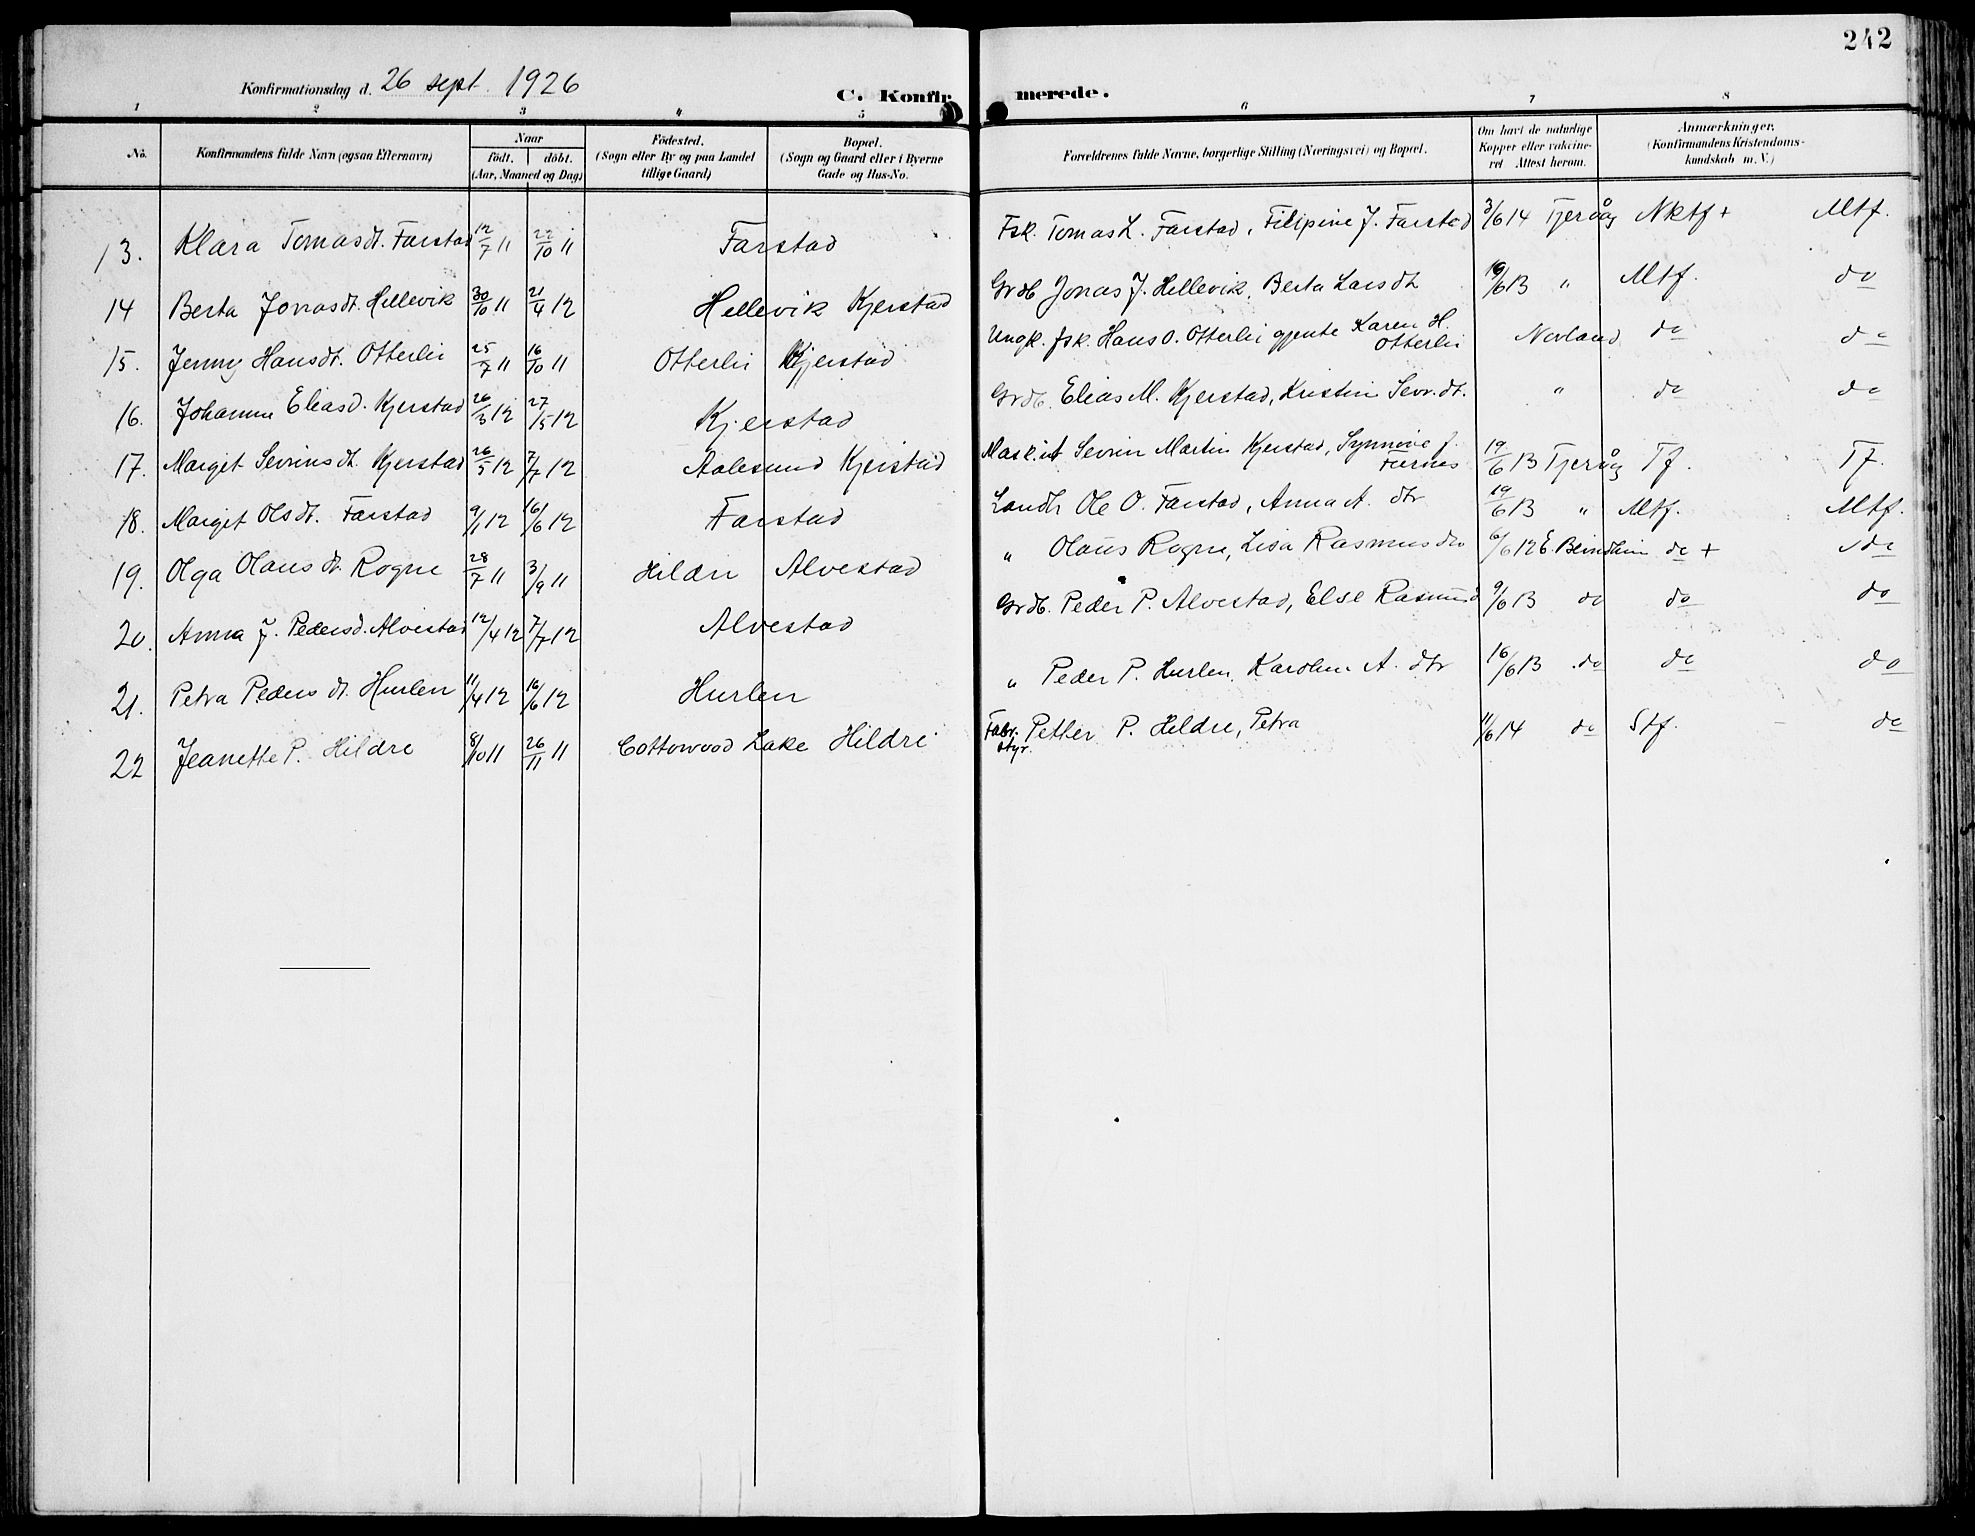 242
Konfirmationsdag d. 26 sept. 1926
C. Konfirmerede.
1 2 3 4 5 6 7 8
No.
Konfirmandens fulde Navn (ogsaa Efternavn)
Naar
födt. döbt.
(Aar, Maaned og Dag)
Födested.
(Sogn eller By og paa Landet
tillige Gaard)
Bopæl.
(Sogn og Gaard eller i Byerne
Gade og Hus-No.
Forældrenes fulde Navne, borgerlige Stilling (Næringsvei) og Bopæl.
Om havt de naturlige
Kopper eller vakcine-
ret Attest herom.
Anmærkninger.
(Konfirmandens Kristendoms-
kundskab m. V.)
13. Klara Tomasdt. Farstad 12/7 11 22/10 11 Farstad Fsk. Tomas L. Farstad, Filipine J. Farstad 3/6 14 Tjeråg Nktf + Mtf.
14 Berta Jonasdt. Hellevik 30/10 11 21/4 12 Hellevik Kjerstad Grdb Jonas J. Hellevik, Berta Larsdt 19/6 13 " Mtf. do
15. Jenny Hansdt. Otterlei 25/7 11 16/10 11 Otterlei Kjerstad Ungk. fsk. Hans O. Otterlei gjente Karen H. Otterlei Norland do do
16. Johanne Eliasd. Kjerstad 26/3 12 27/5 12 Kjerstad Grdb. Elias M. Kjerstad, Kristin Sevr.dt. " do do
17. Marget Sevrinsdt. Kjerstad 26/5 12 7/7 12 Aalesund Kjerstad Mask.ist Sevrin Martin Kjerstad, Synnøve J. Furnes 19/6 13 Tjeråg Tf. Tf.
18. Marget Olsdt. Farstad 9/1 12 16/6 12 Farstad Landh Ole O. Farstad, Anna A. dtr 19/6 13 " Mtf. Mtf.
19. Olga Olaus dt. Rogne 28/7 11 3/9 11 Hildri Alvestad " Olaus Rogne, Lisa Rasmus dtr 6/6 12 E. do + do
20. Anna J. Pedersd. Alvestad 12/4 12 7/7 12 Alvestad Grdb. Peder P. Alvestad, Else Rasmusd 9/6 13 do do do
21. Petra Peders dt. Hurlen 11/4 12 16/6 12 Hurlen " Peder P. Hurlen, Karoline A. dtr 16/6 13 do do do
22 Jeanette P. Hildre 8/10 11 26/11 11 Cottowood Lake Hildre Fabr. styr. Petter P. Hildre, Petra 11/6 14 do Stf. do